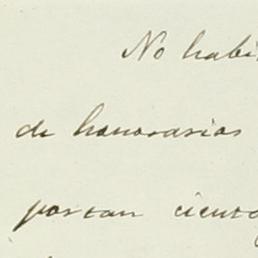 No habi
de honorarios
portan ciento